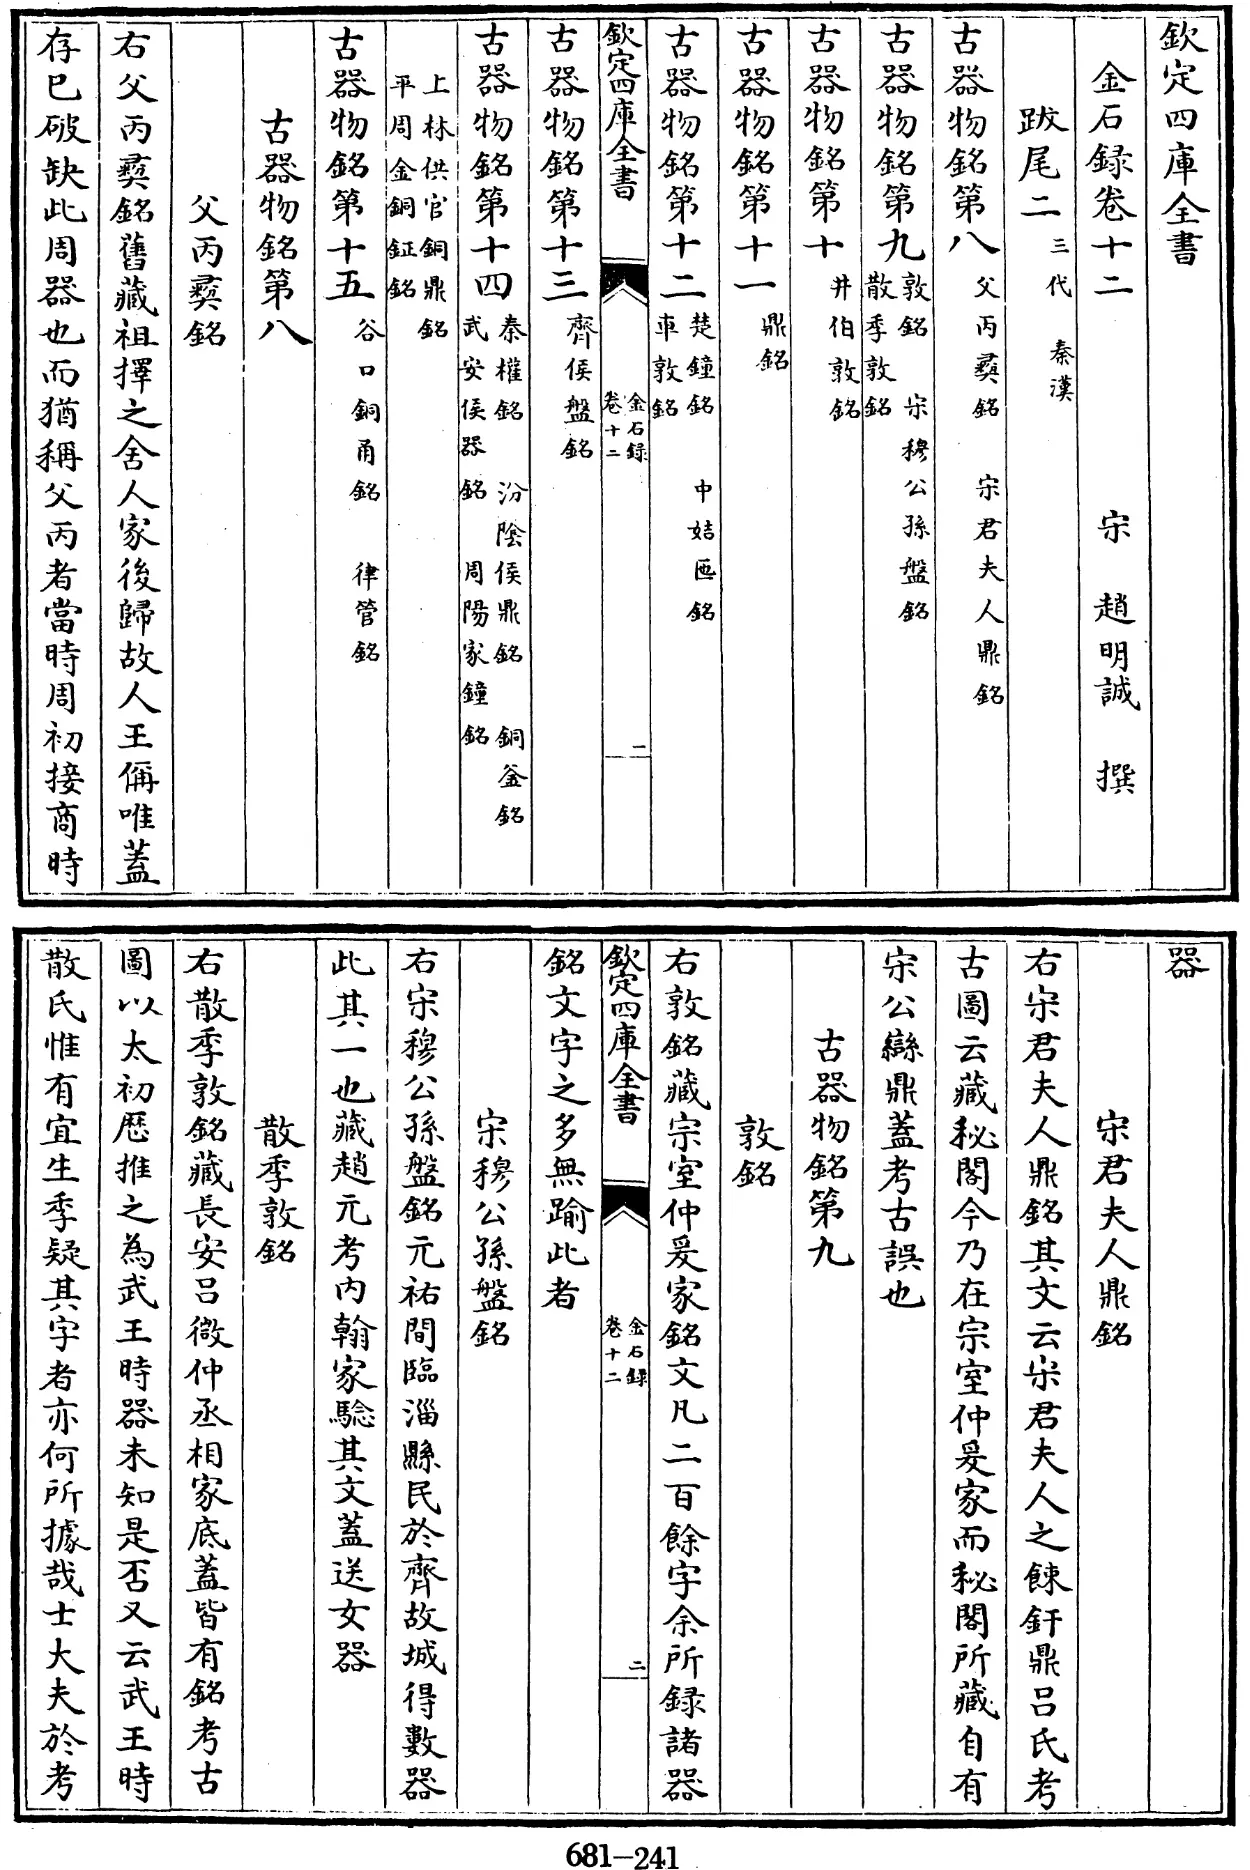 欽定四庫全書
金石録卷十二
宋 趙明誠 撰
跋尾二 三代 秦漢
古器物銘第八 父丙彛銘 宋君夫人鼎銘
古器物銘第九 敦銘 宋穆公孫盤銘
散季敦銘
古器物銘第十 井伯敦銘
古器物銘第十一 鼎銘
古器物銘第十二 楚鐘銘 中姞匜銘
車敦銘
欽定四庫全書
金石録
卷十二
一
古器物銘第十三 齊侯盤銘
古器物銘第十四 秦權銘 汾陰侯鼎銘 銅釜銘
武安侯器銘 周陽家鐘銘
上林供官銅鼎銘
平周金銅鉦銘
古器物銘第十五 谷口銅甬銘 律管銘
古器物銘第八
父丙彛銘
右父丙彛銘舊藏祖擇之舍人家後歸故人王偁唯蓋
存已破缺此周器也而猶稱父丙者當時周初接商時
器
宋君夫人鼎銘
右宋君夫人鼎銘其文云宋君夫人之餗釪鼎吕氏考
古圖云藏秘閣今乃在宗室仲爰家而秘閣所藏自有
宋公䜌鼎蓋考古誤也
古器物銘第九
敦銘
右敦銘藏宗室仲爰家銘文凡二百餘字余所録諸器
欽定四庫全書
金石録
卷十二
二
銘文字之多無踰此者
宋穆公孫盤銘
右宋穆公孫盤銘元祐間臨淄縣民於齊故城得數器
此其一也藏趙元考内翰家驗其文蓋送女器
散季敦銘
右散季敦銘藏長安吕微仲丞相家底蓋皆有銘考古
圖以太初厯推之為武王時器未知是否又云武王時
散氏惟有宜生季疑其字者亦何所據哉士大夫於考
681-241